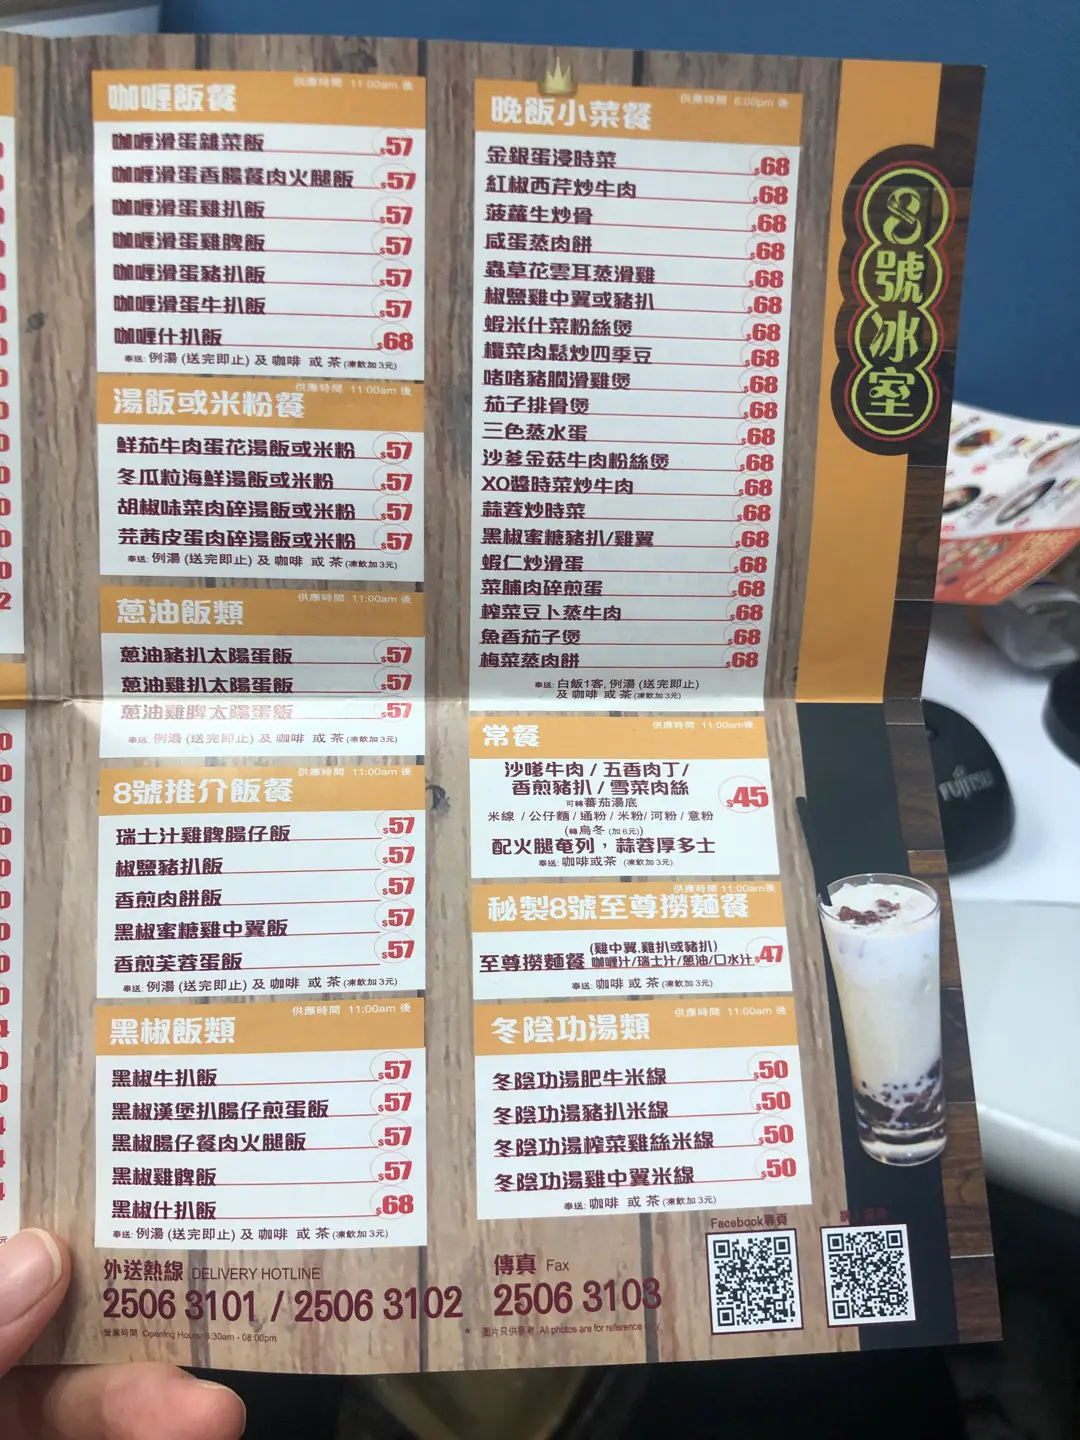 咖喱飯餐
供應時間 11:00am 後
咖喱滑蛋雜菜飯 $57
咖喱滑蛋香腸餐肉火腿飯 $57
咖喱滑蛋雞扒飯 $57
咖喱滑蛋雞脾飯 $57
咖喱滑蛋豬扒飯 $57
咖喱滑蛋牛扒飯 $57
咖喱什扒飯 $68
奉送: 例湯 (送完即止) 及 咖啡 或 茶 (凍飲加3元)
湯飯或米粉餐
供應時間 11:00am 後
鮮茄牛肉蛋花湯飯或米粉 $57
冬瓜粒海鮮湯飯或米粉 $57
胡椒味菜肉碎湯飯或米粉 $57
芫茜皮蛋肉碎湯飯或米粉 $57
奉送: 例湯 (送完即止) 及 咖啡 或 茶 (凍飲加3元)
蔥油飯類
供應時間 11:00am 後
蔥油豬扒太陽蛋飯 $57
蔥油雞扒太陽蛋飯 $57
蔥油雞脾太陽蛋飯 $57
奉送: 例湯 (送完即止) 及 咖啡 或 茶 (凍飲加3元)
8號推介飯餐
供應時間 11:00am 後
瑞士汁雞髀腸仔飯 $57
椒鹽豬扒飯 $57
香煎肉餅飯 $57
黑椒蜜糖雞中翼飯 $57
香煎芙蓉蛋飯 $57
奉送: 例湯 (送完即止) 及 咖啡 或 茶 (凍飲加3元)
黑椒飯類
供應時間 11:00am 後
黑椒牛扒飯 $57
黑椒漢堡扒腸仔煎蛋飯 $57
黑椒腸仔餐肉火腿飯 $57
黑椒雞髀飯 $57
黑椒什扒飯 $68
奉送: 例湯 (送完即止) 及 咖啡 或 茶 (凍飲加3元)
外送熱線 DELIVERY HOTLINE
2506 3101 / 2506 3102
營業時間 Opening Hours: 6:30am - 08:00pm
晚飯小菜餐
供應時間 6:00pm 後
金銀蛋浸時菜 $68
紅椒西芹炒牛肉 $68
菠蘿生炒骨 $68
咸蛋蒸肉餅 $68
蟲草花雲耳蒸滑雞 $68
椒鹽雞中翼或豬扒 $68
蝦米什菜粉絲煲 $68
欖菜肉鬆炒四季豆 $68
啫啫豬膶滑雞煲 $68
茄子排骨煲 $68
三色蒸水蛋 $68
沙爹金菇牛肉粉絲煲 $68
XO醬時菜炒牛肉 $68
蒜蓉炒時菜 $68
黑椒蜜糖豬扒/雞翼 $68
蝦仁炒滑蛋 $68
菜脯肉碎煎蛋 $68
榨菜豆卜蒸牛肉 $68
魚香茄子煲 $68
梅菜蒸肉餅 $68
奉送: 白飯1客, 例湯 (送完即止)
及 咖啡 或 茶 (凍飲加3元)
常餐
供應時間 11:00am後
沙嗲牛肉 / 五香肉丁 /
香煎豬扒 / 雪菜肉絲
可轉蕃茄湯底
米線 / 公仔麵 / 通粉 / 米粉/ 河粉 / 意粉
(轉烏冬 (加6元))
配火腿奄列，蒜蓉厚多士
奉送: 咖啡或茶 (凍飲加3元)
$45
秘製8號至尊撈麵餐
供應時間 11:00am後
(雞中翼,雞扒或豬扒)
至尊撈麵餐 咖喱汁/瑞士汁/蔥油/口水汁 $47
奉送: 咖啡 或 茶 (凍飲加3元)
冬陰功湯類
供應時間 11:00am 後
冬陰功湯肥牛米線 $50
冬陰功湯豬扒米線 $50
冬陰功湯榨菜雞絲米線 $50
冬陰功湯雞中翼米線 $50
奉送: 咖啡 或 茶 (凍飲加3元)
傳真 Fax
2506 3103
圖片只供參考 All photos are for reference only
Facebook專頁
8號冰室
FUJITSU